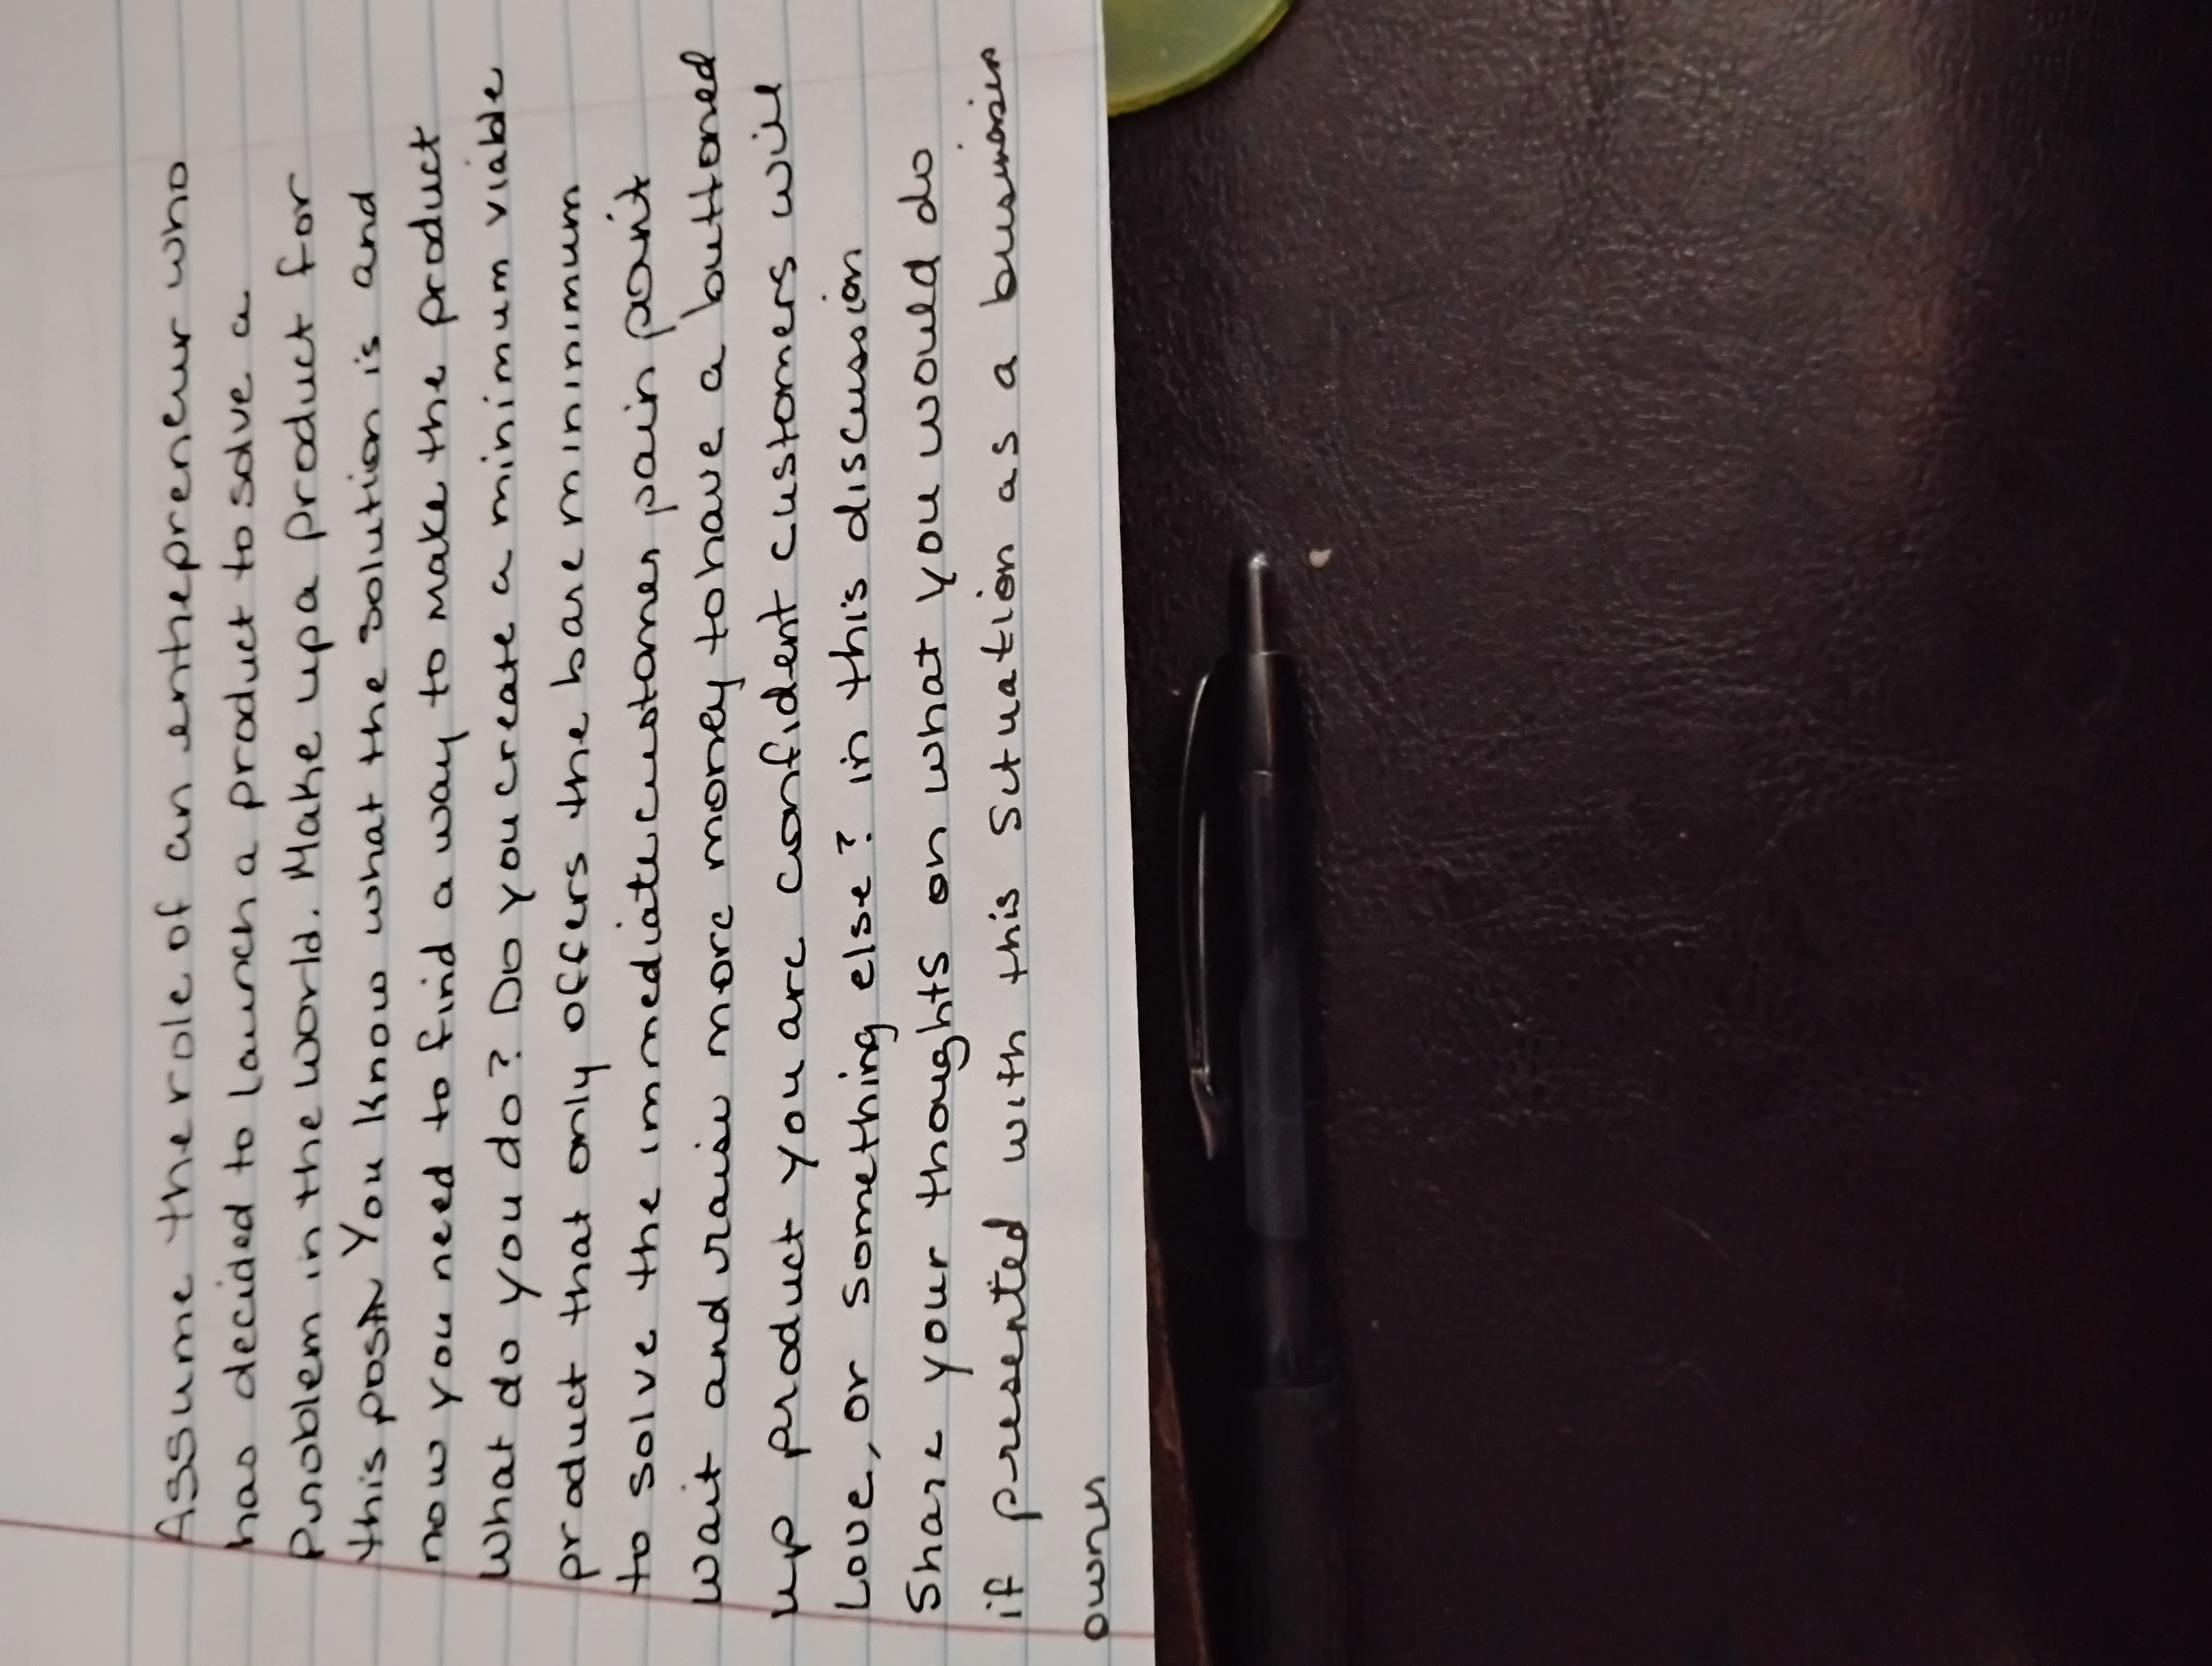 Assume the role of an enthepreneur who
has decided to launch a product to solve a
problem in the world. Make up a product for
this post. You know what the solution is and
now you need to find a way to make the product
What do you do? Do you create a minimum viable
product that only offers the bare mininimum
to solve the immediate customer pain point
wait and raise more money to have a buttoned
up product you are confident customers will
Love, or something else? in this discussion
Share your thoughts on what you would do
if presented with this situation as a business
owner